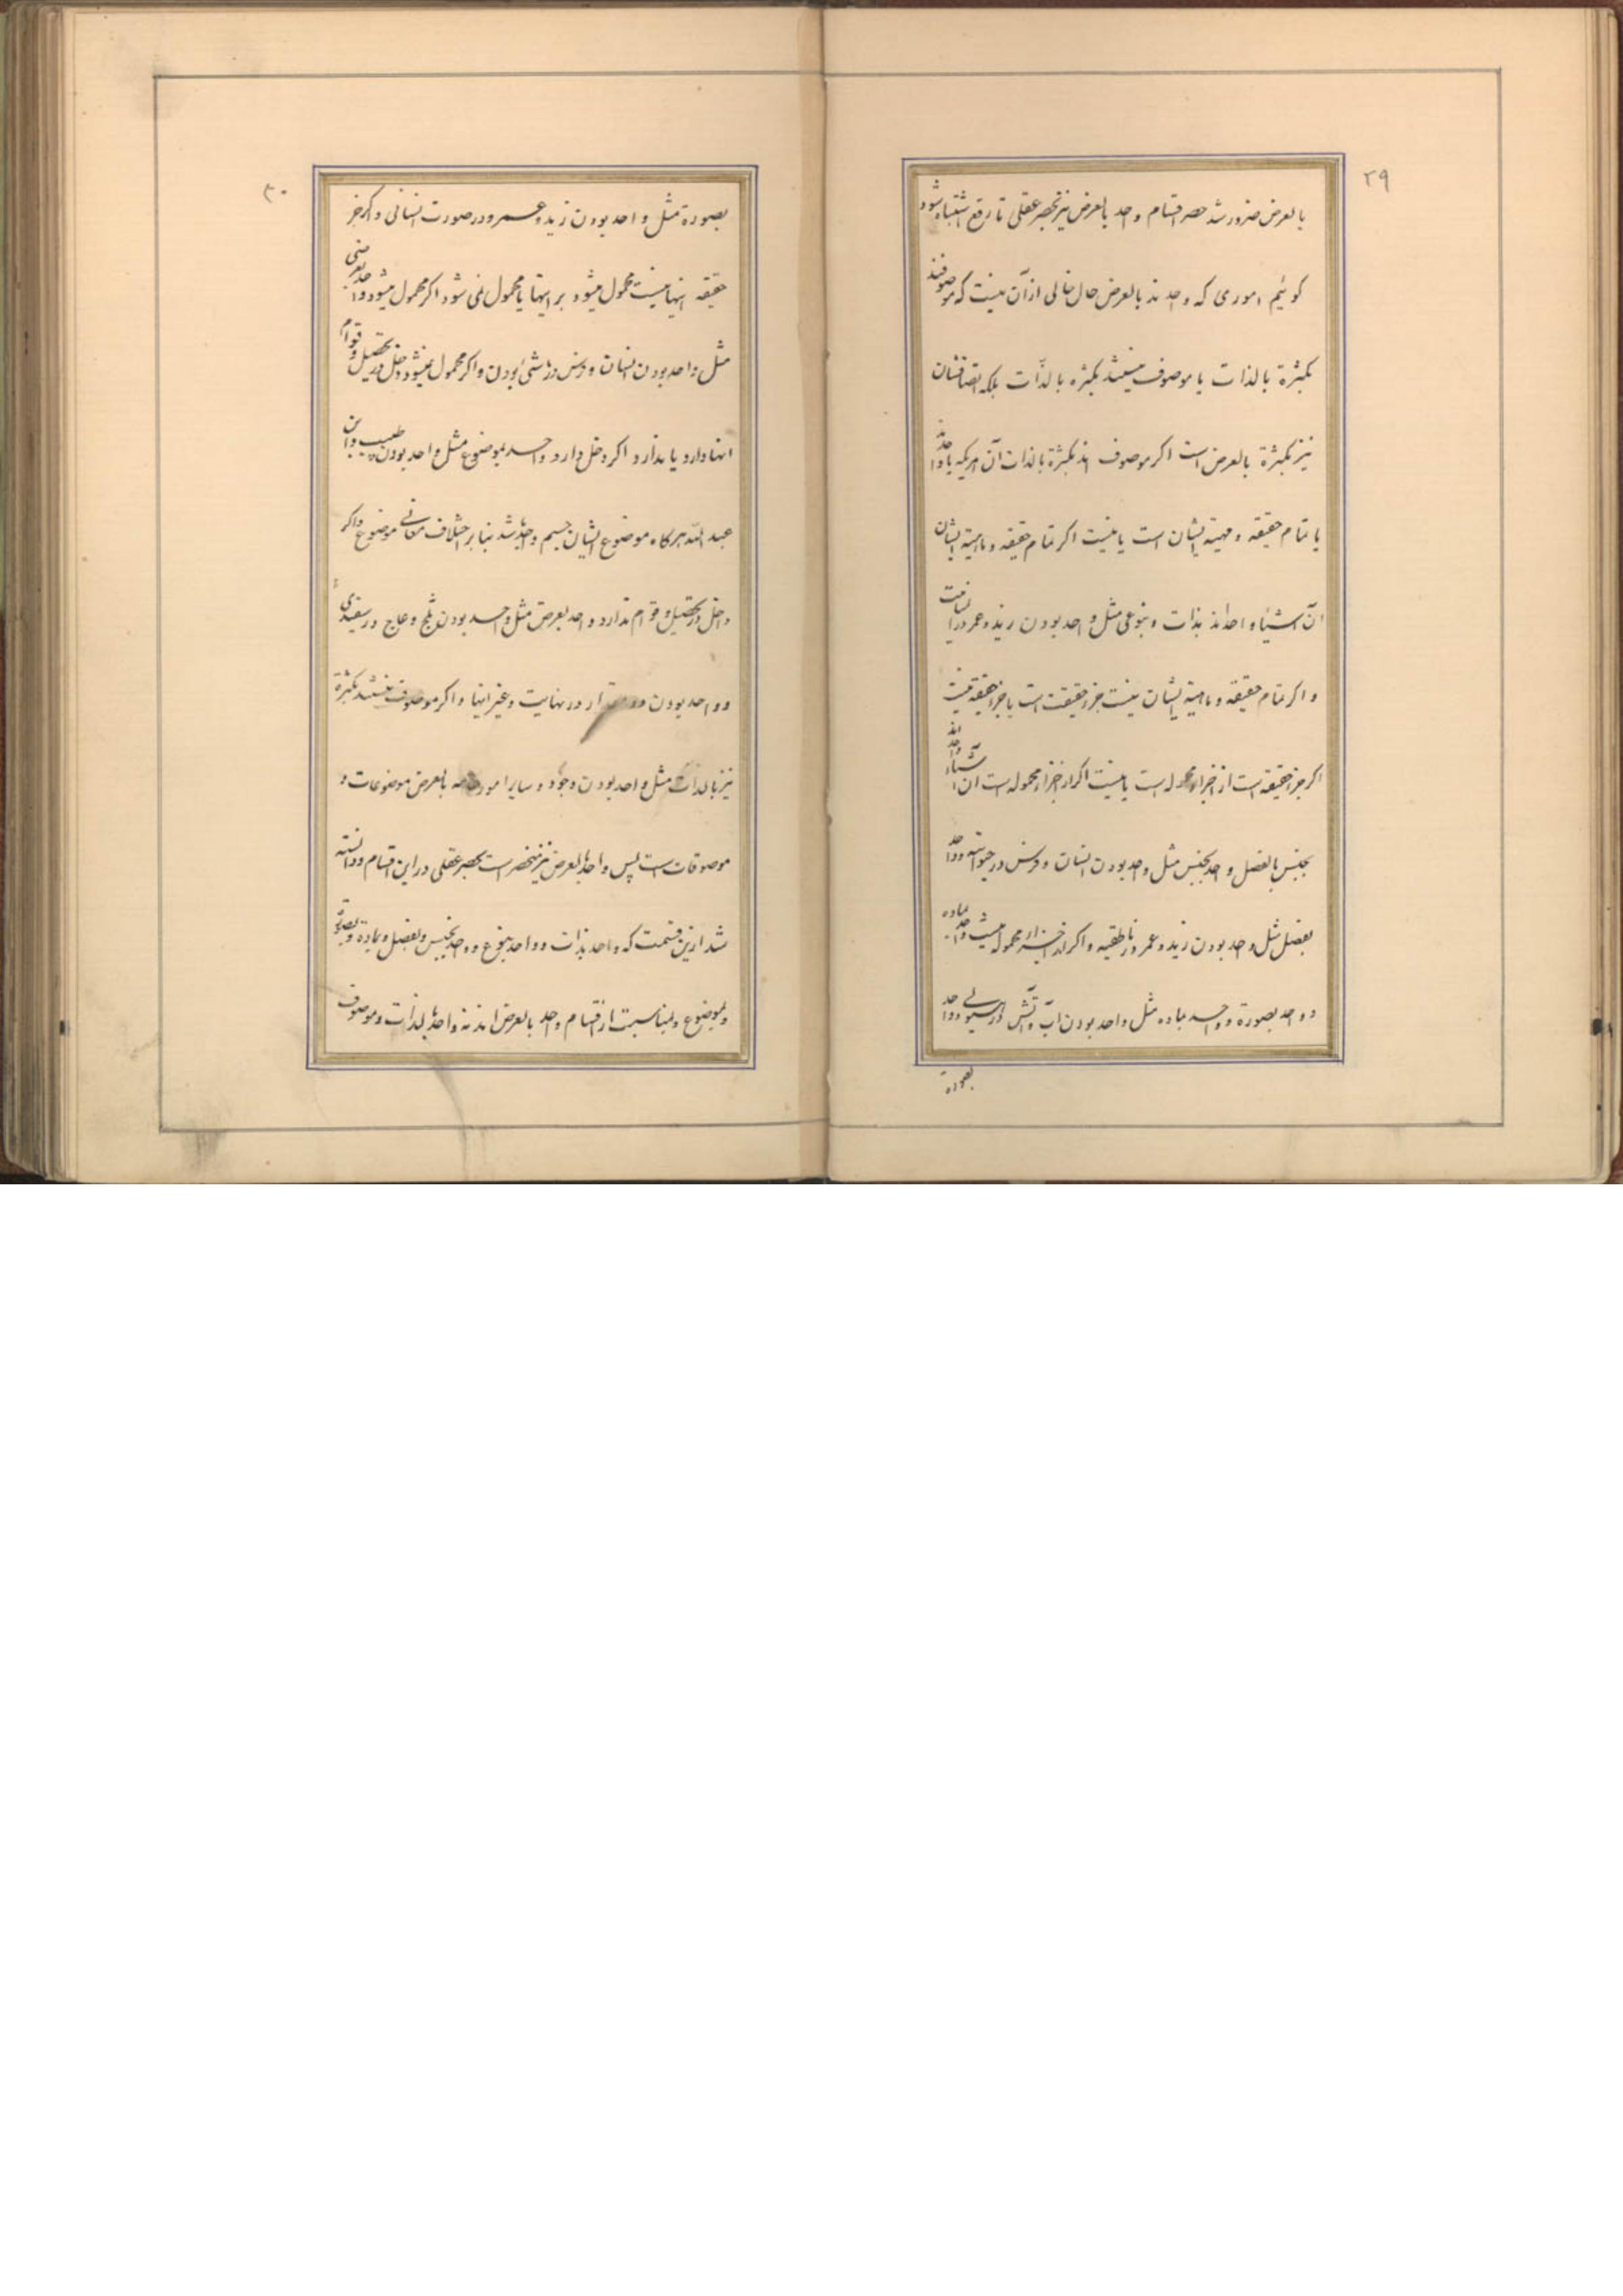 ۲۹
بالعرض ضرور شد حصر اقسام واحد بالعرض نیز بحصر عقلی تا رفع اشتباه شود
کوئیم اموری که واحدند بالعرض حال خالی از آن نیست که موصوفند
بکثرة بالذات یا موصوف نیستند بکثره بالذّات بلکه اتصافشان
نیز بکثرة بالعرض است اکر موصوف اند بکثرة بالذات آن امریکه با و احدند
یا تمام حقیقه و مهیة ایشان است یا نیست اکر تمام حقیقه و ماهیة ایشان
آن اشیاء واحدند بذات و بنوعی مثل واحد بودن زید و عمر در انسانیت
و اکر تمام حقیقه و ماهیة ایشان نیست جزء حقیقت است یا جزء حقیقه نیست
اکر جزء حقیقه است از اجزاء محموله است یا نیست اکر از اجزاء محموله است آن اشیاء واحد اند
بجنس یا بفصل واحد بجنس مثل واحد بودن انسان و فرس در حیوانیه و واحد
بفصل مثل واحد بودن زید و عمر در ناطقیه و اکر از اجزاء محموله نیست واحد بماده
و واحد بصورة و واحد بماده مثل واحد بودن آب و آتش در هیولی و واحد
بصورة
۳۰
بصورة مثل واحد بودن زید و عمرو در صورت انسانی و اکر جزء
حقیقه اینها نیست محمول میشود بر اینها یا محمول نمی شود اکر محمول میشود واحد بعرضی
مثل واحد بودن انسان و فرس در ماشی بودن و اکر محمول نمیشود دخل در تحصیل و قوام
اینها دارد یا ندارد اکر دخل دارد واحد بموضوع مثل واحد بودن طبیب و ابن
عبد الله هرکاه موضوع ایشان جسم واحد باشد بنا بر اختلاف معانی موضوع و اکر
دخل در تحصیل و قوام ندارد واحد بعرض مثل واحد بودن ثلج و عاج در سفیدی
و واحد بودن دو مقدار در نهایت و غیر اینها و اکر موصوف نیستند بکثرة
نیز بالذات مثل واحد بودن وجود و سایر امور عامه بالعرض موضوعات و
موصوفات است پس واحد بالعرض نیز منحصر است بحصر عقلی در این اقسام و دانسته
شد از این قسمت که واحد بذات و واحد بنوع و واحد بجنس و بفصل و بماده و بصورة
و بموضوع و بمناسبت از اقسام واحد بالعرض اند نه واحد بالذات و موصوف